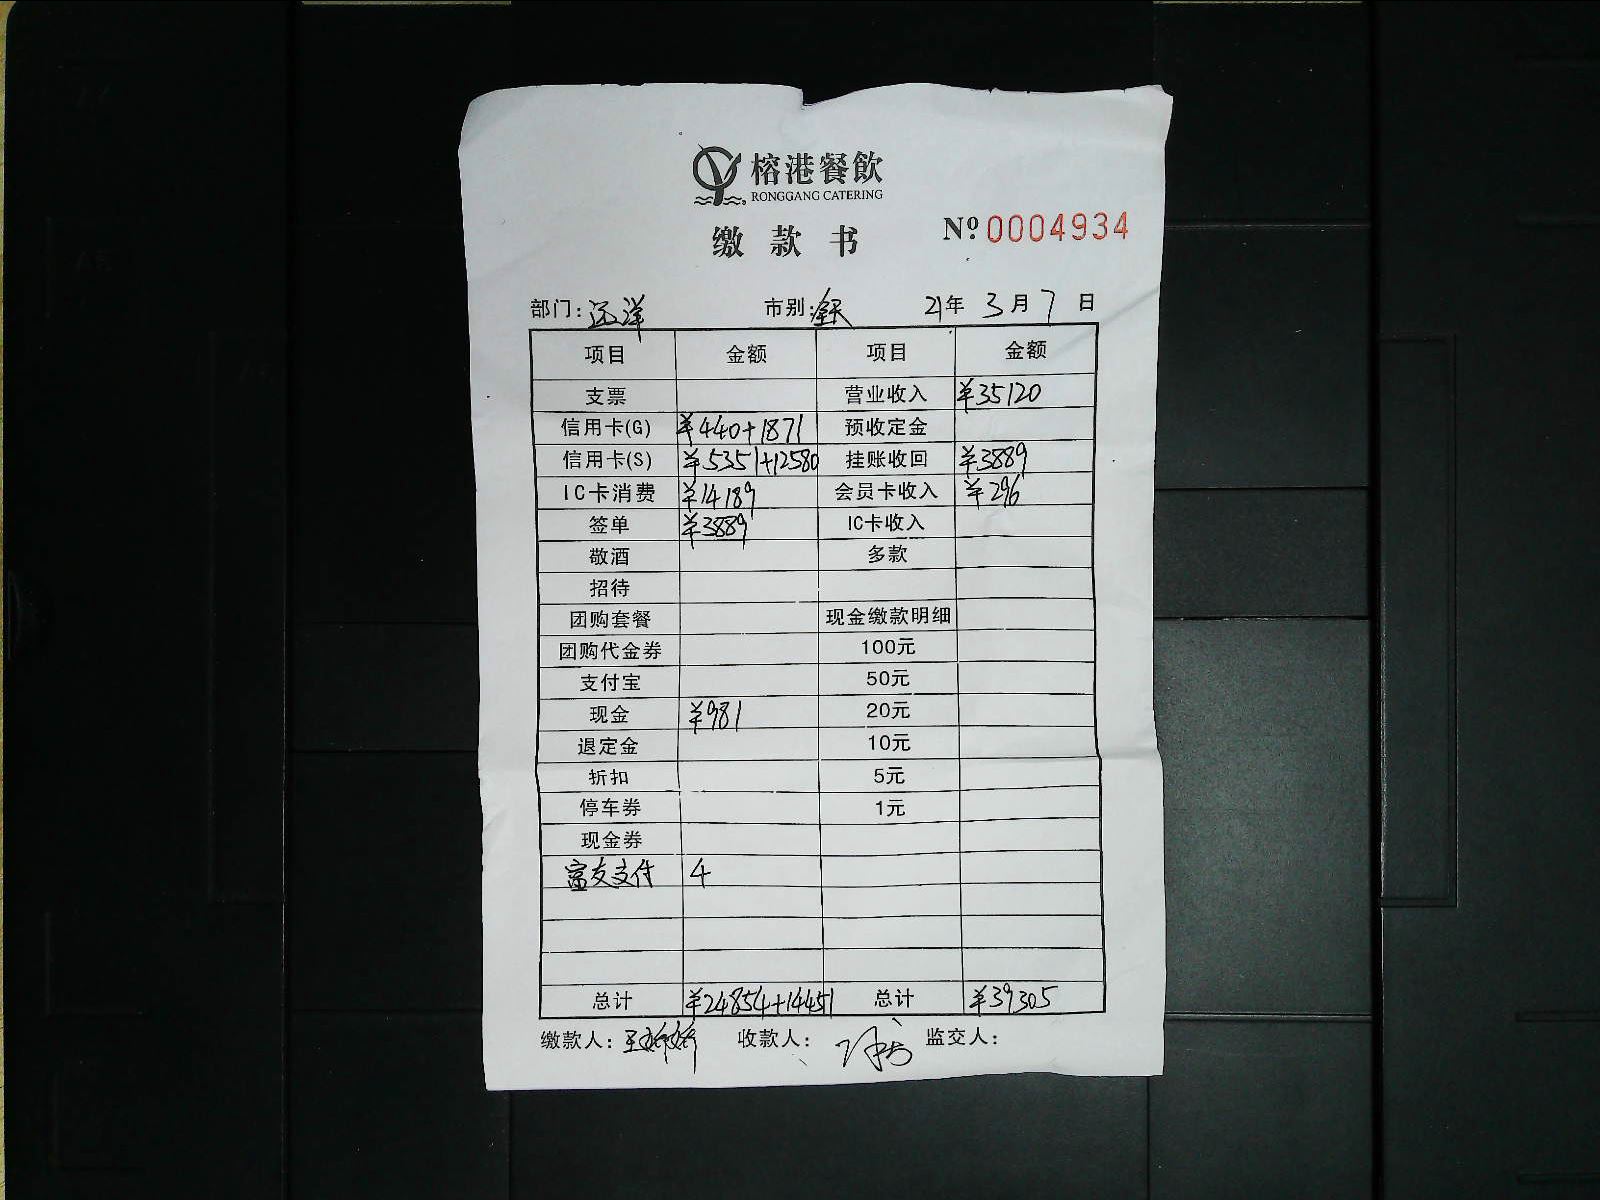 榕港餐飲
RONGGANG CATERING
缴款书
Nº 0004934
部门: 远洋 市别: 全天 21年 3月 7日
项目 金额 项目 金额
支票 营业收入 ¥35120
信用卡(G) ¥440+1871 预收定金
信用卡(S) ¥5351+12580 挂账收回 ¥3889
IC卡消费 ¥14189 会员卡收入 ¥296
签单 ¥3889 IC卡收入
敬酒 多款
招待
团购套餐 现金缴款明细
团购代金券 100元
支付宝 50元
现金 ¥981 20元
退定金 10元
折扣 5元
停车券 1元
现金券
富友支付 4
总计 ¥24854+14451 总计 ¥39305
缴款人: 收款人: 监交人: